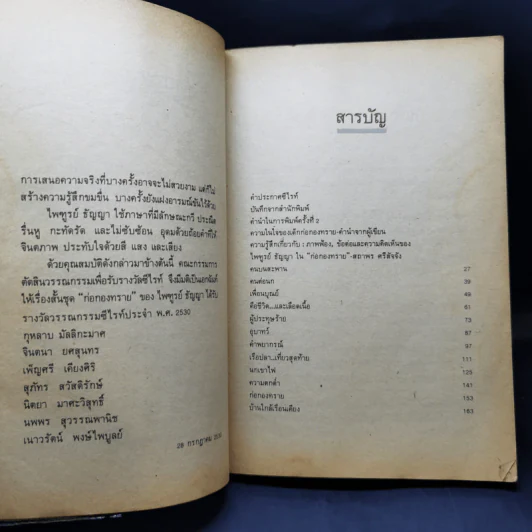 การเสนอความจริงที่บางครั้งอาจจะไม่สวยงาม แต่ก็ไม่
สร้างความรู้สึกขมขื่น บางครั้งยังแฝงอารมณ์ขันไว้ด้วย
ไพฑูรย์ ธัญญา ใช้ภาษาที่มีลักษณะกวี ประณีต
รื่นหู กะทัดรัด และไม่ซับซ้อน อุดมด้วยถ้อยคำที่ให้
จินตภาพ ประทับใจด้วยสี แสง และเสียง
ด้วยคุณสมบัติดังกล่าวมาข้างต้นนี้ คณะกรรมการ
ตัดสินวรรณกรรมเพื่อรับรางวัลซีไรท์ จึงมีมติเป็นเอกฉันท์
ให้เรื่องสั้นชุด "ก่อกองทราย" ของ ไพฑูรย์ ธัญญา ได้รับ
รางวัลวรรณกรรมซีไรท์ประจำ พ.ศ. 2530
กุหลาบ มัลลิกะมาส
จินตนา ยศสุนทร
เพ็ญศรี เคียงศิริ
สุภัทร สวัสดิรักษ์
นิตยา มาศะวิสุทธิ์
นพพร สุวรรณพานิช
เนาวรัตน์ พงษ์ไพบูลย์
28 กรกฎาคม
สารบัญ
คำประกาศซีไรท์
บันทึกจากสำนักพิมพ์
คำนำในการพิมพ์ครั้งที่ 2
ความในใจของเด็กก่อกองทราย-คำนำจากผู้เขียน
ความรู้สึกเกี่ยวกับ : ภาพพ้อง, ข้อต่อและความคิดเห็นของ
ไพฑูรย์ ธัญญา ใน "ก่อกองทราย"-สถาพร ศรีสัจจัง
คนบนสะพาน 27
คนต่อนก 39
เพื่อนบุณย์ 49
คือชีวิต...และเลือดเนื้อ 61
ผู้ประทุษร้าย 73
อุบาทว์ 87
คำพยากรณ์ 97
เรือปลา...เที่ยวสุดท้าย 111
นกเขาไฟ 125
ความตกต่ำ 141
ก่อกองทราย 151
บ้านใกล้เรือนเคียง 163